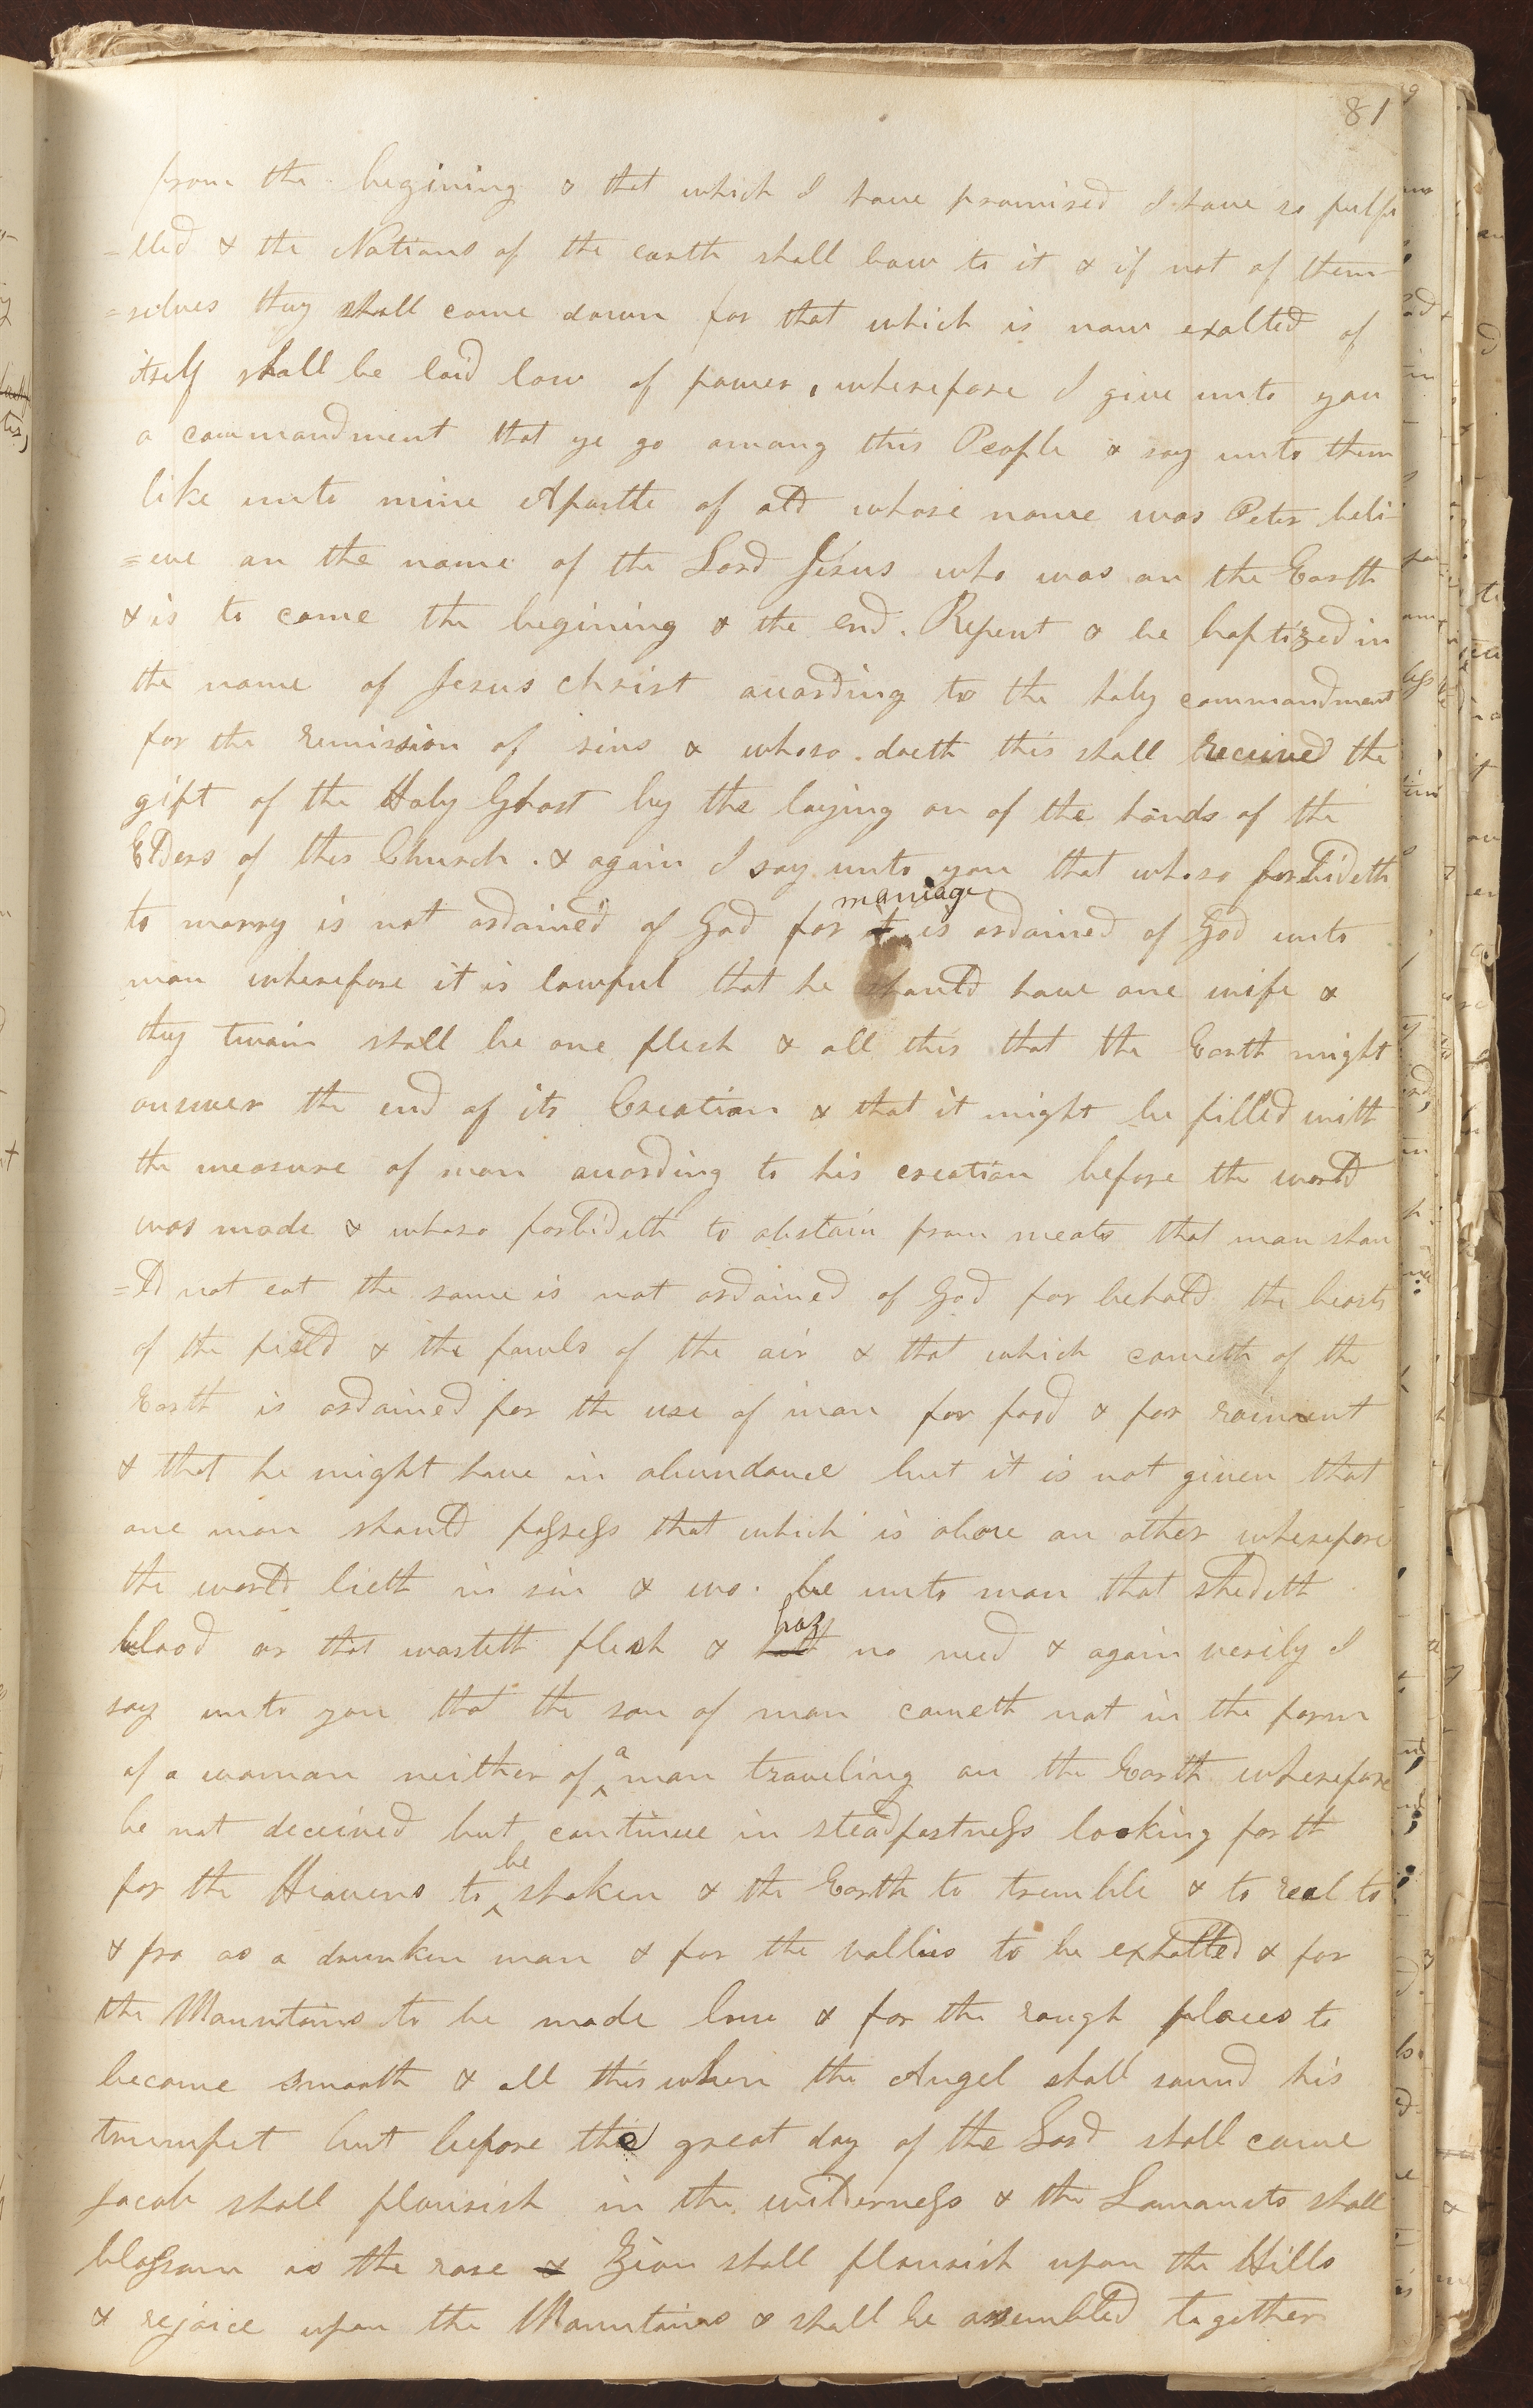 81
from the begining & that which I have promised I have so fulfi
=lled & the Nations of the earth shall bow to it & if not of them-
=selves they shall come down for that which is now exalted of
itself shall be laid low of power, wherefore I give unto you
a commandment that ye go among this People & say unto them
like unto mine Apostle of old whose name was Peter beli-
=eve on the name of the Lord Jesus who was on the Earth
& is to come the begining & the end. Repent & be baptized in
the name of Jesus Christ according to the holy commandment
for the remission of sins & whoso doeth this shall received the
gift of the Holy Ghost by the laying on of the hands of the
Elders of this Church. & again I say unto you that whoso forbideth
marriage
to marry is not ordained of God for it is ordained of God unto
man wherefore it is lawful that he should have one wife &
they twain shall be one flesh & all this that the Earth might
answer the end of its Creation & that it might be filled with
the measure of man according to his creation before the world
was made & whoso forbideth to abstain from meats that man shou
=ld not eat the same is not ordained of God for behold the beasts
of the field & the fowls of the air & that which cometh of the
Earth is ordained for the use of man for food & for raiment
& that he might have in abundance but it is not given that
one man should possess that which is above an other wherefore
the world lieth in sin & wo. be unto man that shedeth
haz
blood or that wasteth flesh & hath no need & again verily I
say unto you that the son of man cometh not in the form
of a woman neither of a man traveling on the Earth wherefore
be not deceived but continue in steadfastness looking forth
for the Heavens to be shaken & the Earth to tremble & to reel to
& fro as a drunken man & for the vallies to be exhalted & for
the Mountains to be made low & for the rough places to
become smooth & all this when the Angel shall sound his
trumpet but before the great day of the Lord shall come
Jacob shall flourish in the wilderness & the Lamanits shall
blossom as the rose & Zion shall flourish upon the Hills
& rejoice upon the Mountains & shall be assembled together